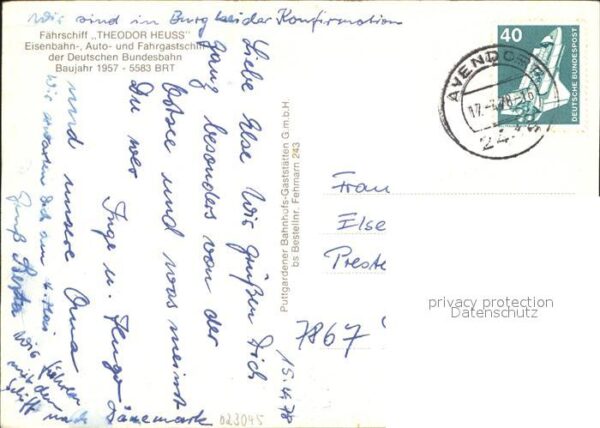 Wir sind in Burg bei der Konfirmation
Fährschiff „THEODOR HEUSS"
Eisenbahn-, Auto- und Fahrgastschiff
der Deutschen Bundesbahn
Baujahr 1957 - 5583 BRT
Liebe Else Wir grüßen Dich
ganz besonders von der
Ostsee und was meinst
Du wer
Inge u.
und unsere Oma
Wir erwarten Dich am 4. Mai
Gruß
Wir fahren
mit dem
Schiff nach Dänemark
Puttgardener Bahnhofs-Gaststätten G.m.b.H.
bs Bestellnr. Fehmarn 243
15.4.78
40
DEUTSCHE BUNDESPOST
AVENDORF
17.-4.78-16
Frau
Else
Preste
7867
privacy protection
Datenschutz
023045